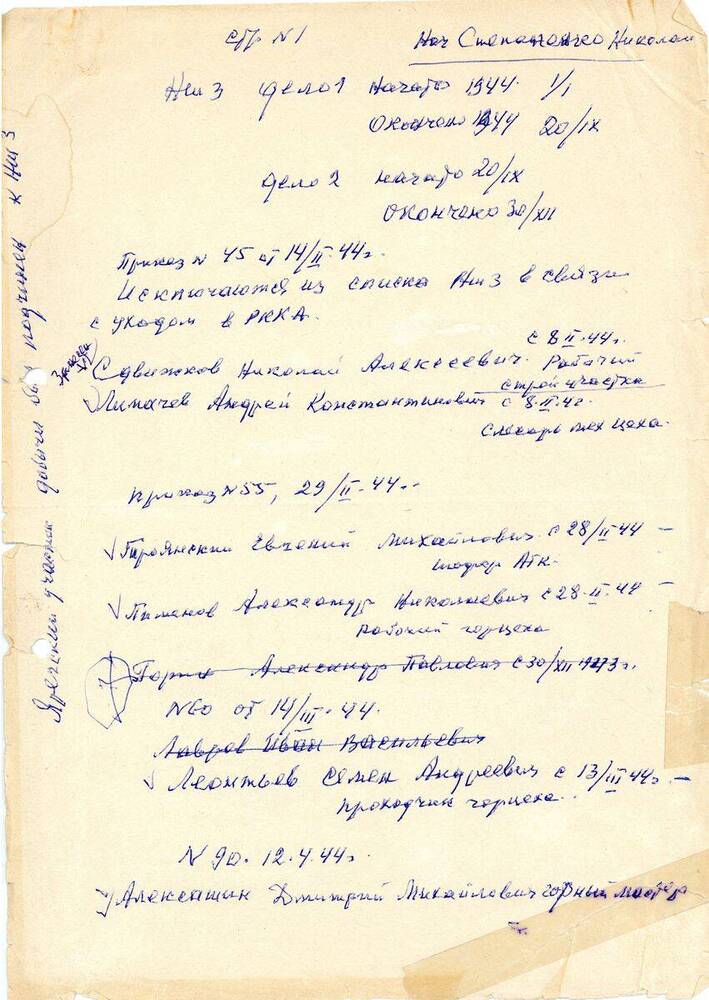 стр. N 1
Нач Степаненко Николай
Нш 3 дело 1 начато 1944 1/I
Окончено 1944 20/IX
дело 2 начато 20/IX
окончено 30/XII
Приказ N 45 от 14/II-44г.
Исключаются из списка Нш 3 в связи
с уходом в РККА.
с 8 II-44г.
Сдвижков Николай Алексеевич. Рабочий
строй участка
√ Лихачев Андрей Константинович с 8-II-4г.
слесарь мех цеха.
приказ N 55, 29/II-44..
√ Евгений Михайлович с 28/II-44 –
шофер Атк.
√ Пиманов Александр Николаевич с 28-II-44 –
рабочий горцеха
Александр Павлович с 30/XII 1943г.
N 60 от 14/III-44.
Лавров Иван Васильевич
√ Леонтьев Семен Андреевич с 13/III 44г –
проходчик горцеха.
N 90. 12.4.44г
√ Алексашин Дмитрий Михайлович горный мастер
участок добычи был подчинен к Нш 3